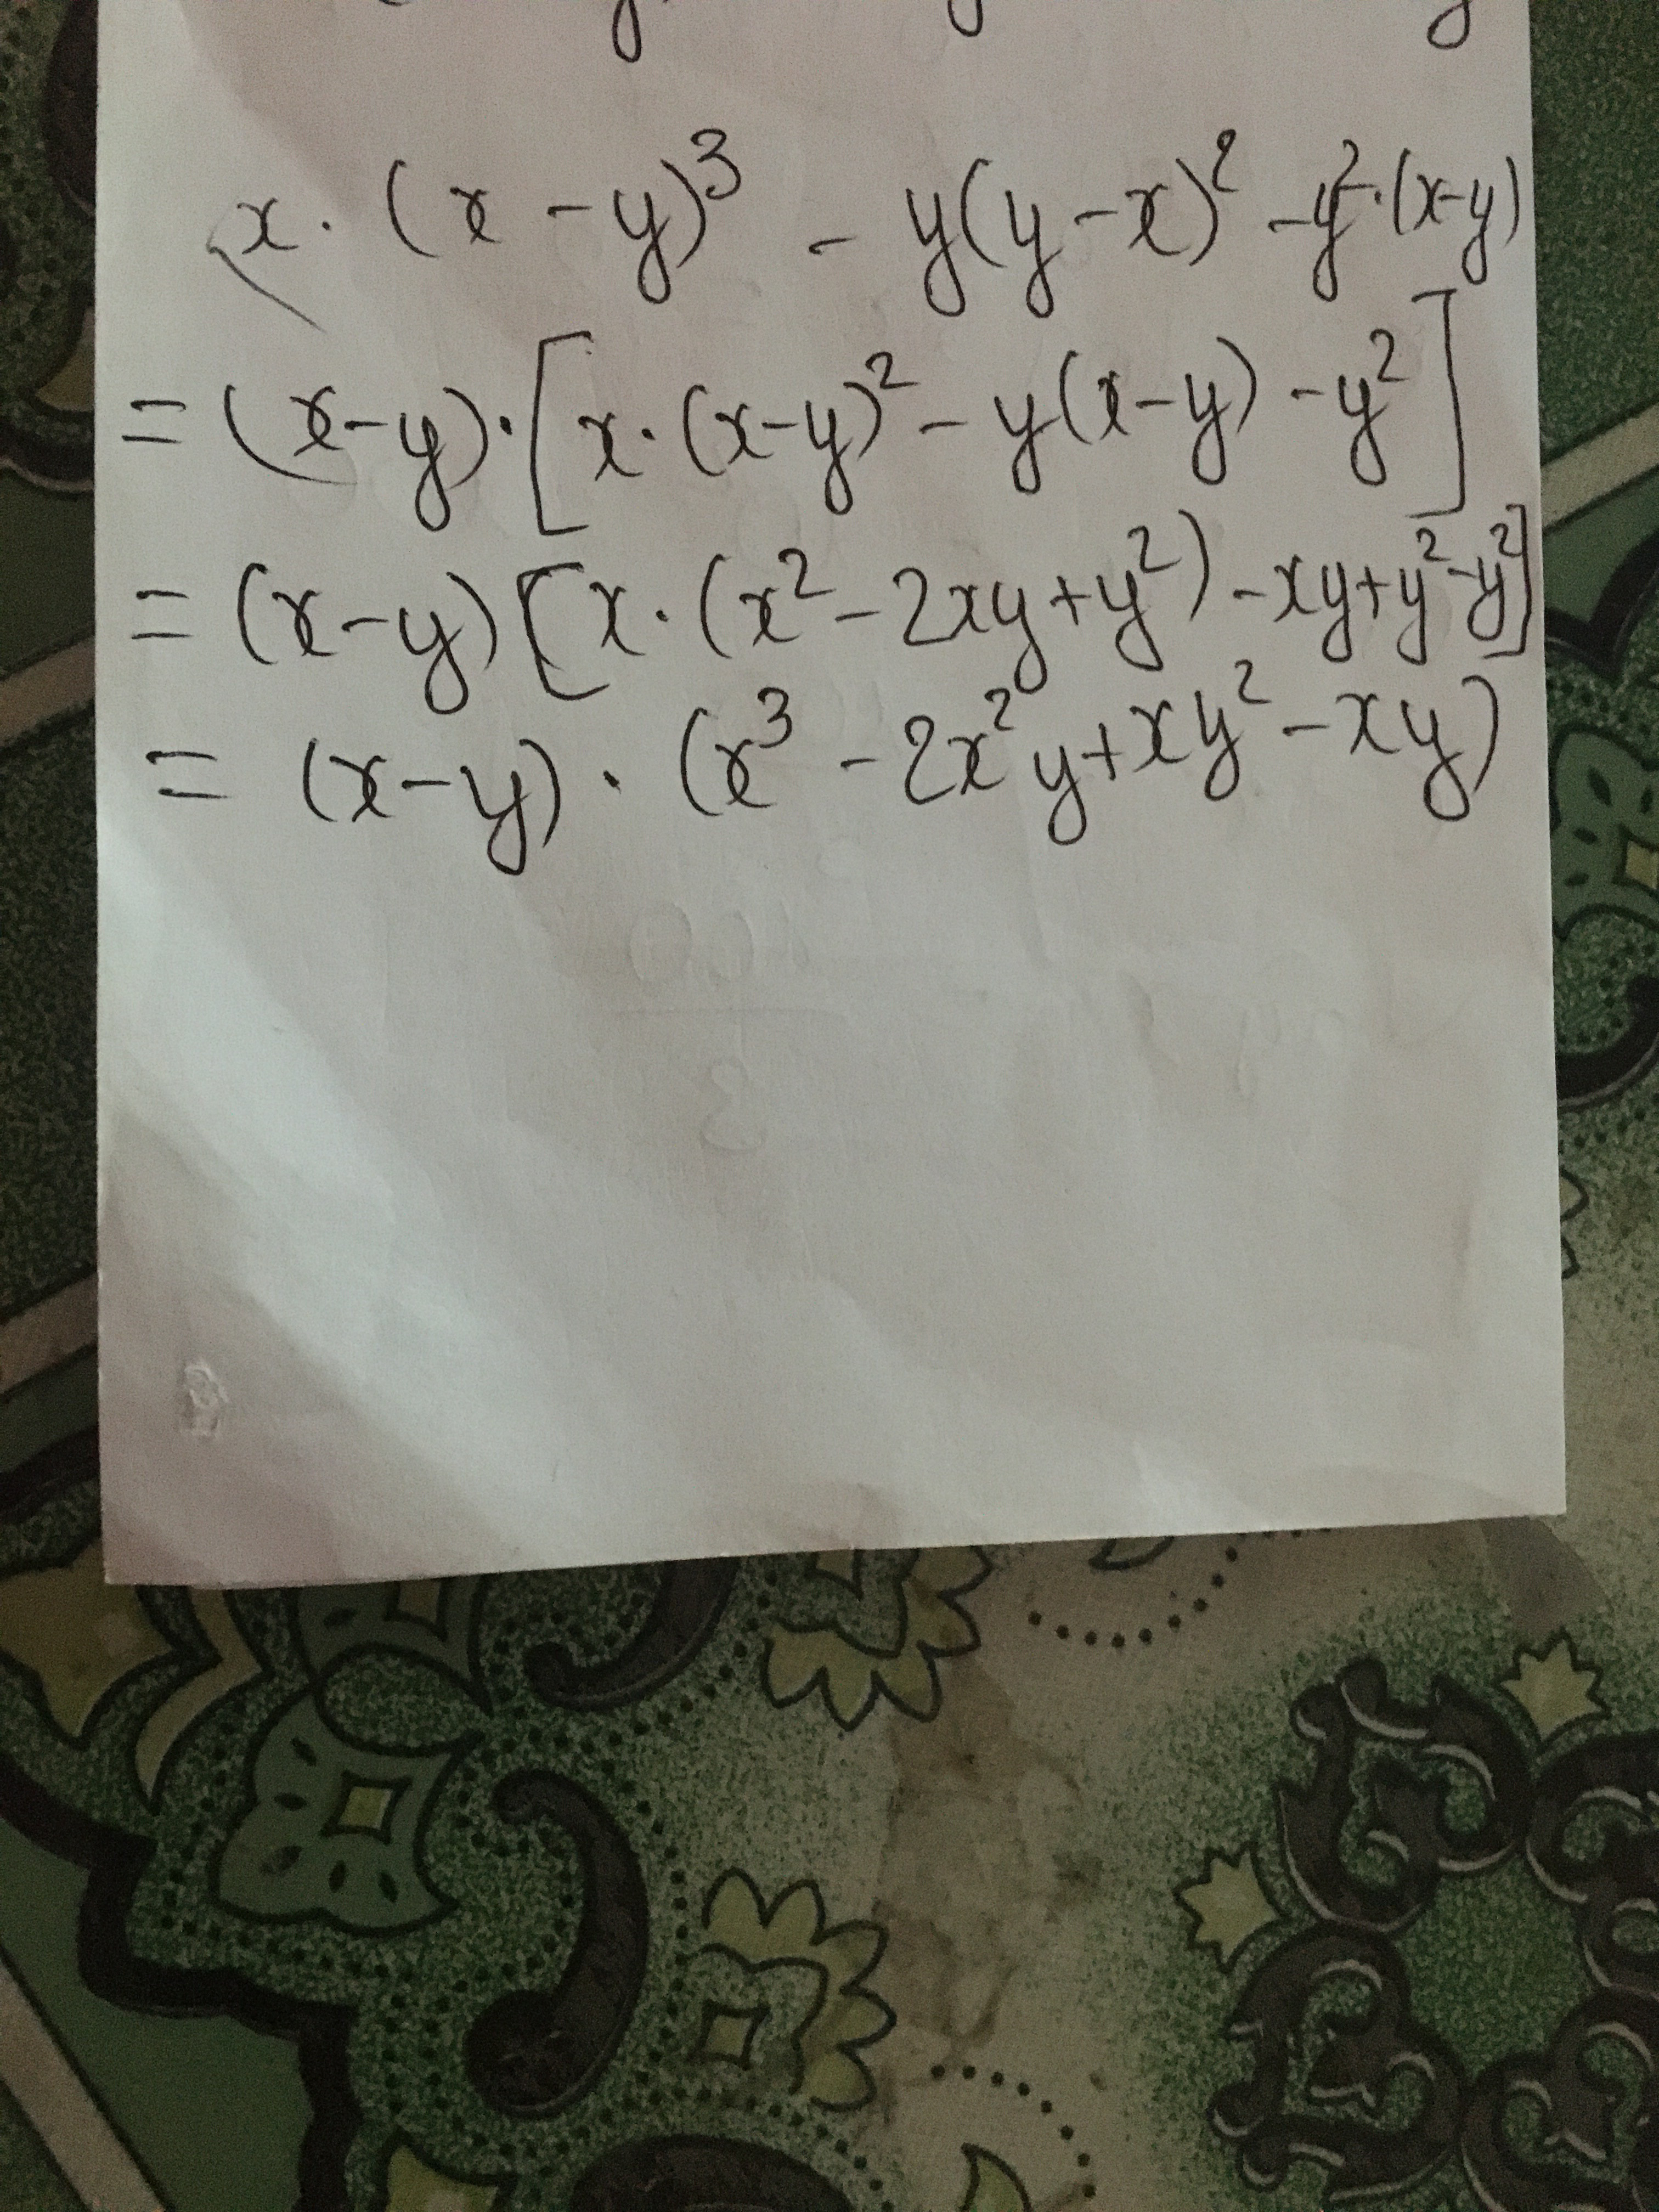 x · (x - y)³ - y(y - x)² - y² · (x - y)
= (x - y) · [x · (x - y)² - y(x - y) - y²]
= (x - y) [x · (x² - 2xy + y²) - xy + y² - y²]
= (x - y) · (x³ - 2x²y + xy² - xy)